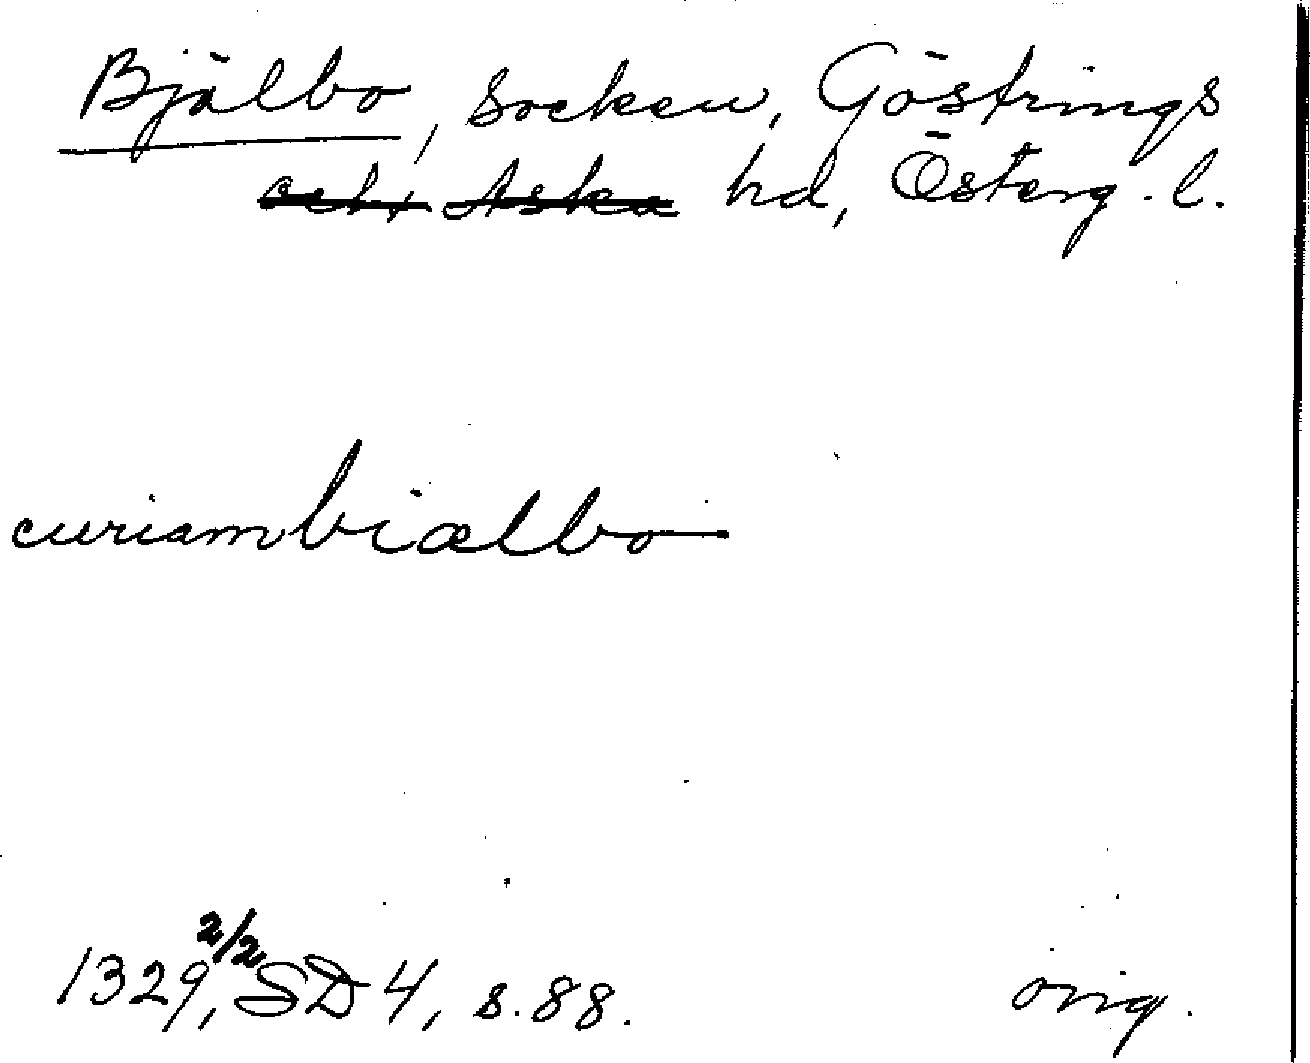 Bjälbo, socken, Göstrings
och Aska hd, Österg. l.
curiam biælbo
1329 2/2, SD 4, s. 88.
orig.